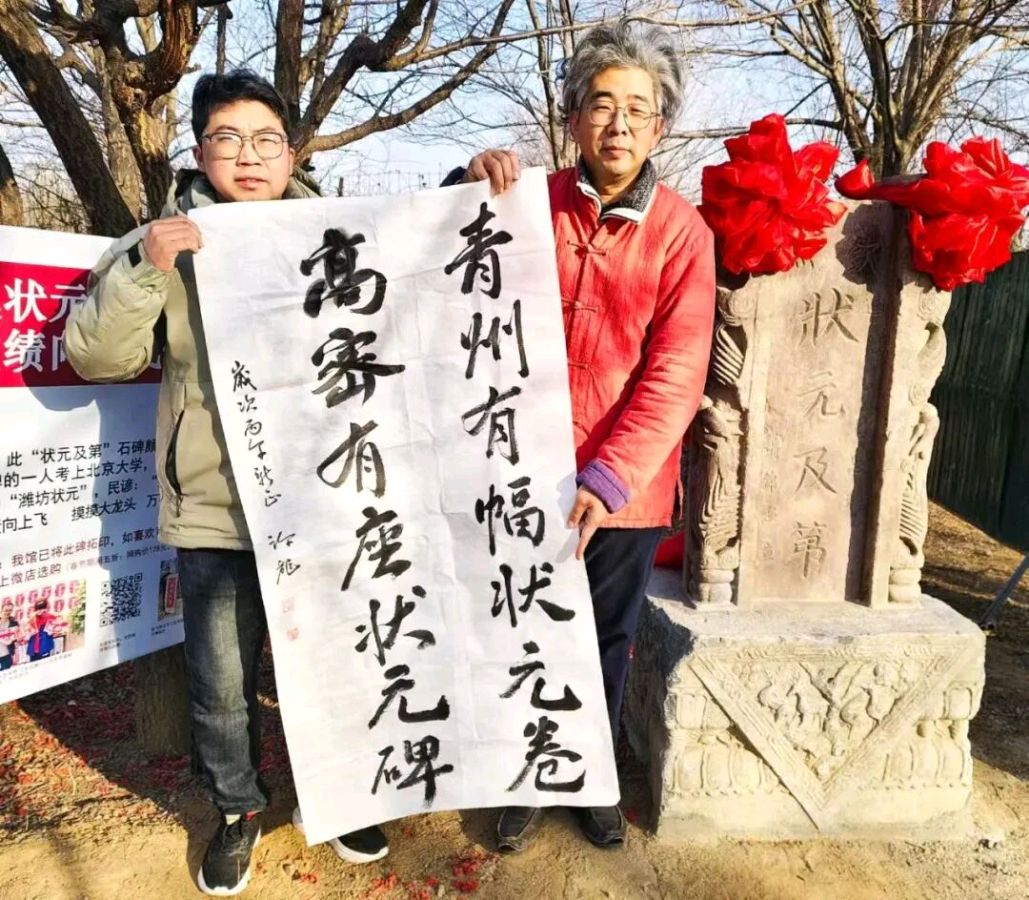 青州有幅状元卷
高密有座状元碑
歲次丙午新正
状元及第
状元
绩向
此“状元及第”石碑颇
的一人考上北京大学，
“潍坊状元”，民谚：“
向上飞 摸摸大龙头 万
我馆已将此碑拓印，如喜欢
上微店选购